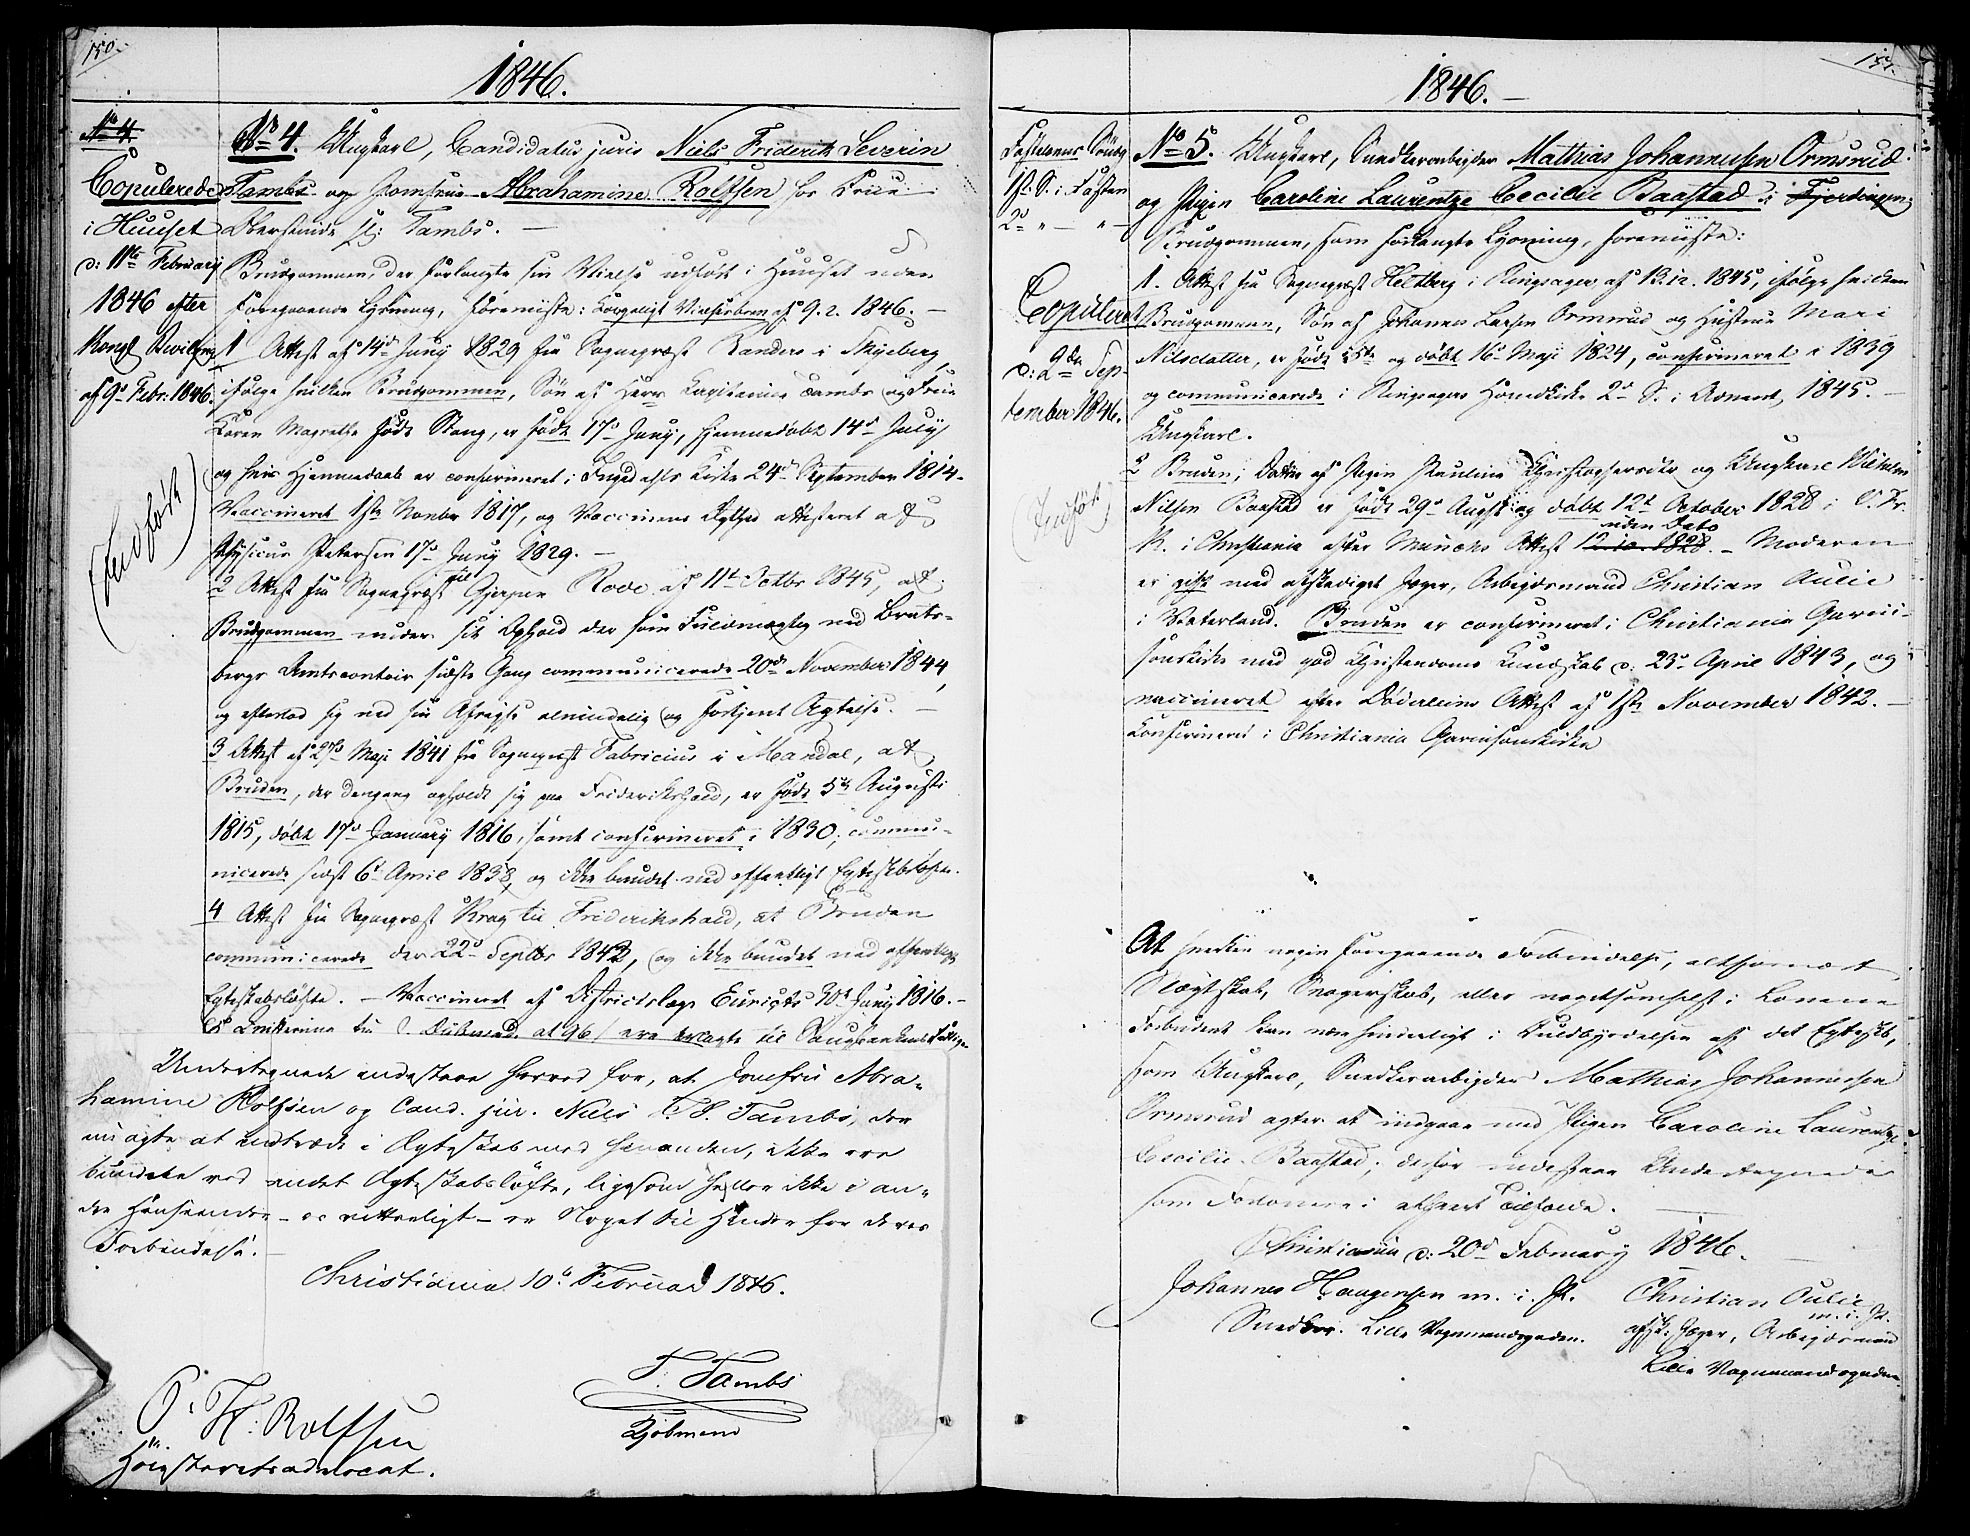 150.
1846.
No 4
Copulerede
i Huuset
d: 11te February
1846 efter
Kongl Bevilgng
af 9de Febr: 1846.
(Indført)
No 4. Ungkarl, Candidatus juris Niels Friderik Severin
Tambs og Jomfrue Abrahamine Rolffsen hos Frue
Oberstinde Tambs.
Brudgommen, der forlangte sin Vielse udført i Huuset uden
Foregaaende Lysning, foreviiste: Kongeligt Vielsesbrev af 9.2.1846.
1 Attest af 14de Juny 1829 fra Sognepræst Randers i Skjeberg,
ifølge hvilken Brudgommen, Søn af Herr Kapitaine Tambs og Frue
Karen Magrethe født Stang, er født 17de Juny, hjemmedøbt 14de July
og hvis Hjemmedaab er confirmeret i Kirke 24de September 1814.
Vaccineret 1ste Novbr 1817, og Vaccinens Ægthed attesteret af
Physicus Petersen 17de Juny 1829.
2 Attest fra Sognepræst til Gjerpen Rode af 11te Octbr 1845, at
Brudgommen under sit Ophold der som Fuldmægtig ved Brats-
bergs Amtscontoir sidste Gang communicerede 20de November 1844,
og efterlod sig ved sin Afreise almindelig og fortjent Agtelse.
3 Attest af 27de Maji 1841 fra Sognepræst Fabricius i Mandal, at
Bruden, der dengang opholdt sig paa Friderikshald, er født 5te Augusti
1815, døbt 17de January 1816, samt confirmeret i 1830, commu-
nicerede sidst 6te April 1838, og ikke bundet ved offentligt Egteskbsløfte.
4 Attest fra Sognepræst Krag til Friderikshald, at Bruden
communicerede der 22de Septbr 1843, og ikke bundet ved offentligt
Egteskabsløfte. - Vaccineret af Districtslæge Eurichs 30te Juny 1816.-
Undertegnede indestaae herved for, at Jomfru Abra-
hamine Rolfsen og Cand. jur. Niels F. S. Tambs, der
nu agte at indtræde i Ægteskab med hinanden, ikke ere
bundne ved andet Ægteskabsløfte, ligesom heller ikke i an-
den Henseende - os vitterligt - er Noget til Hinder for deres
Forbindelse.
Christiania 10de Februar 1846.
T. Tambs
Kjøbmand
O. H. Rolffsen
Høiesteretsadvocat.
151.
1846.
Fastelavns Søndg
1ste S. i Fasten
2de " — " —
Copuleret
d: 2den Sep-
tember 1846.
(Indført)
No 5. Ungkarl, Snedkerarbejder Mathias Johannesen Ormsrud
og Pigen Caroline Laurentze Cecilie Baastad i Fjerdingen.
Brudgommen, som forlangte Lysning, foreviiste:
1. Attest fra Sognepræst Heltberg i Ringsager af 13.12.1845, ifølge hvilken
Brudgommen, Søn af Johannes Larsen Ormsrud og Hustrue Mari
Nilsdatter, er født 5te og døbt 16de Maji 1824, confirmeret i 1839
og communicerede i Ringsagers Hovedkirke 2de S. i Advent, 1845.
Ungkarl.
2 Bruden, Datter af Pigen Pauline Christophersdtr og Ungkarl Wilhelm
Nilsen Baastad er født 29de August og døbt 12te October 1828 i V. Fr.
K. i Christiania efter Munchs Attest 12.10.1828. uden Dato - Moderen
er gift med afskediget Jæger, Arbejdsmand Christian Aulie
i Vaterland. Bruden er confirmeret i Christiania Garni-
sonskirke med god Christendoms Kundskab d: 23de April 1843, og
vaccineret efter Døderleins Attest af 1ste November 1842.
Confirmeret i Christiania Garnisonskirke
At hverken nogen Foregaaende Forbindelse, altfornært
Slægtskab, Svogerskab, eller nogetsomhelst i Lovene
Forbudent kan være hinderligt i Fuldbyrdelsen af det Egteskb,
som Ungkarl, Snedkerarbejder Mathias Johannesen
Ormsrud agter at indgaae med Pigen Caroline Laurentze
Cecilie Baastad, derfor indestaae Undertegnede
som Forlovere i ethvert Tilfælde.
Christiania d: 20de February 1846.
Johannes Haagensen m. i. P.
Snedker. Lille Vognmandsgaden.
Christian Aulie
m. i. P.
afsk: Jæger, Arbejdsmand
Lille Vognmandsgaden.